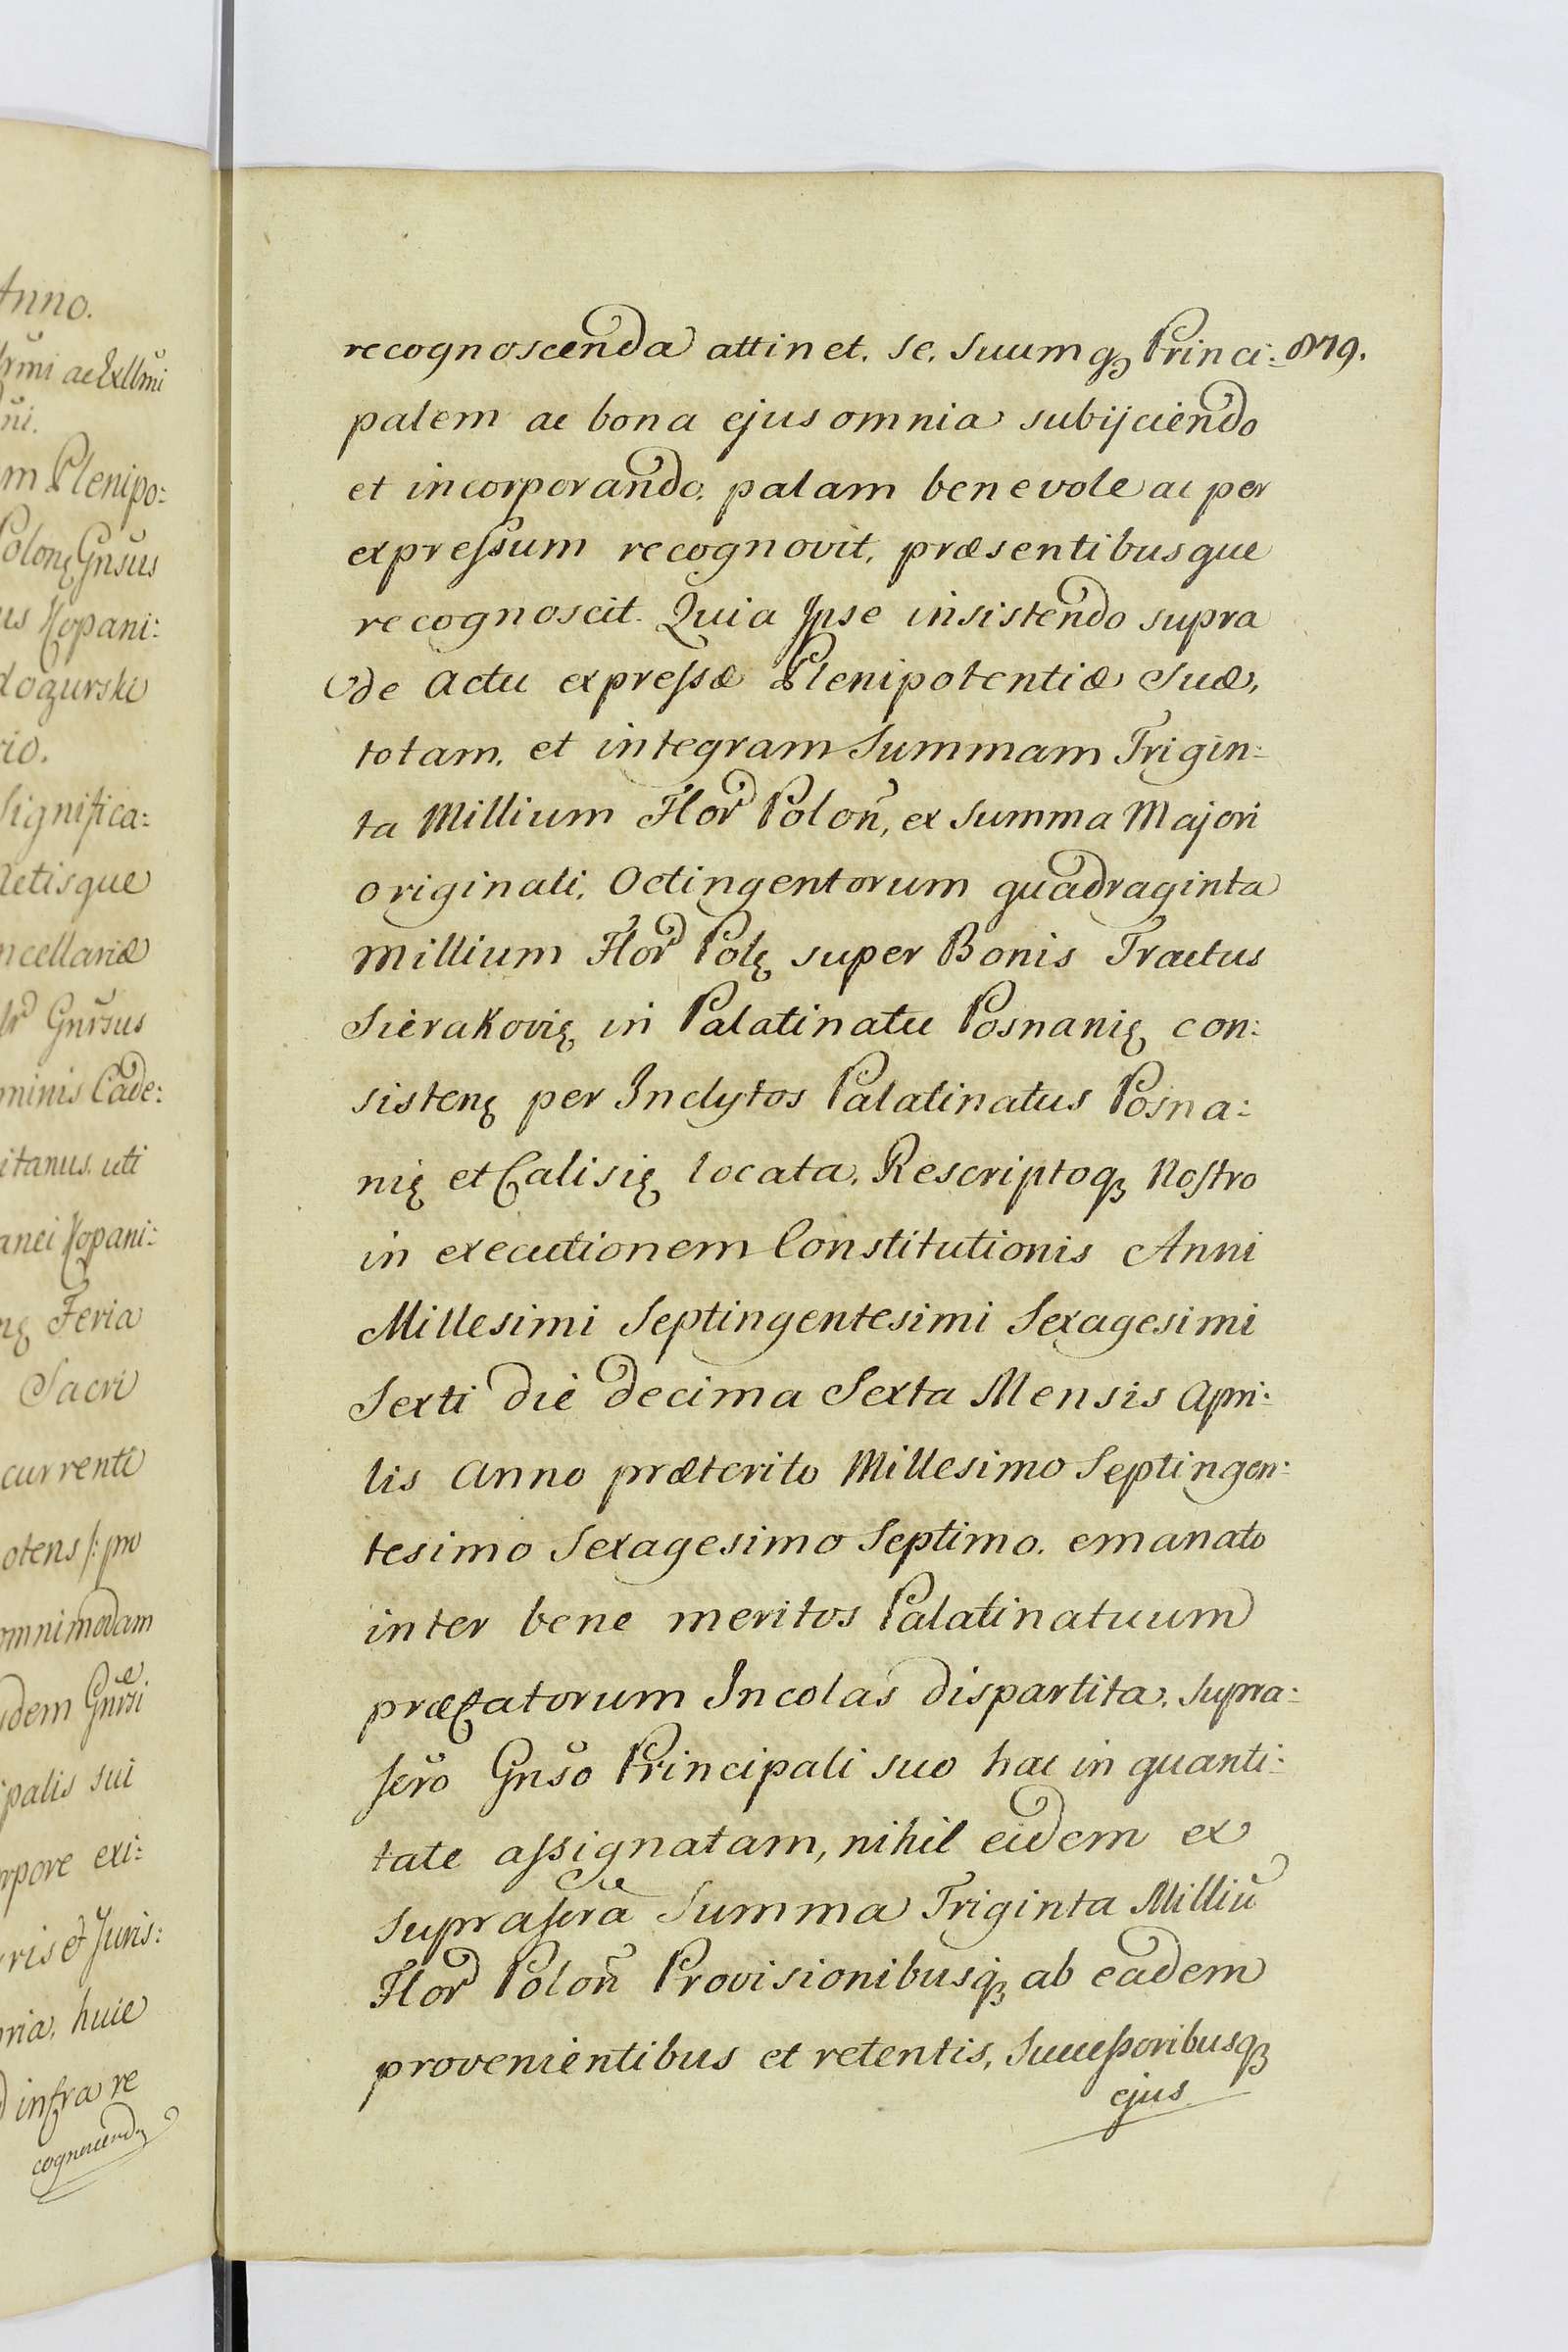 Anno.
ac Exllmi
Plenipo:
Gnsus
Kopani:
Significa:
Gnrsus
Cade:
uti
Kopani:
Feria
Sacri
currenti
pro
omnimodam
sui
exi:
huic
infra re
cognoscend
recognoscenda attinet. se. suumqꝫ Princi: 879.
palem ac bona ejus omnia subijciendo
et incorporando. palam benevole ac per
expreſsum recognovit, præsentibusque
recognoscit. Quia Ipse insistendo supra
de Actu expreſsæ Plenipotentiæ Suæ,
totam, et integram Summam Trigin:
ta Millium Flor Poloñ, ex Summa Majori
originali, Octingentorum quadraginta
Millium Flor Polę super Bonis Tractus
Sierakovię in Palatinatu Posnanię con:
sistenę per Inclytos Palatinatus Posna:
nię et Calisię locata, Rescriptoqꝫ Noſtro
in executionem Constitutionis Anni
Millesimi Septingentesimi Sexagesimi
Sexti die decima Sexta Mensis Apri:
lis Anno præterito Millesimo Septingen:
tesimo Sexagesimo Septimo. emanato
inter bene meritos Palatinatuum
præfatorum Incolas dispartita, supra:
scro Gnso Principali suo hac in quanti:
tate aſsignatam, nihil eidem ex
suprascra Summa Triginta Milliū
Flor Poloñ Provisionibusqꝫ ab eadem
provenientibus et retentis, Succeſsoribusqꝫ
ejus